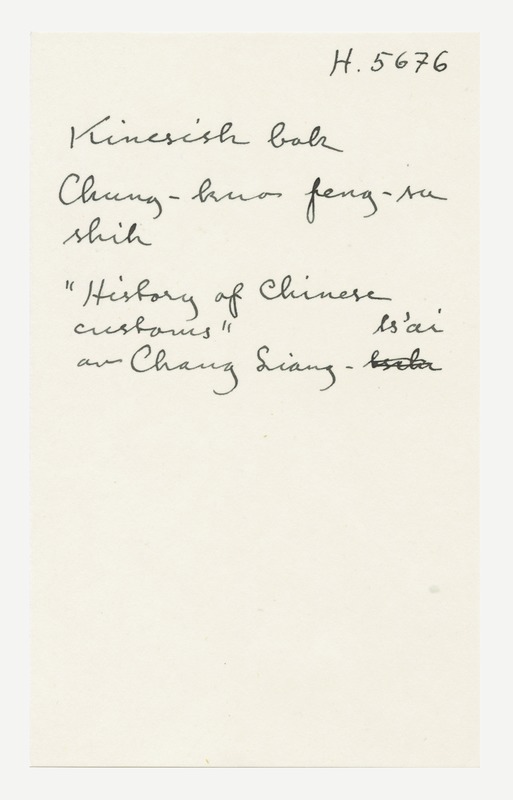 H. 5676
Kinesisk bok
Chung-kuo feng-su
shih
"History of Chinese
customs" ts'ai
av Chang Liang-